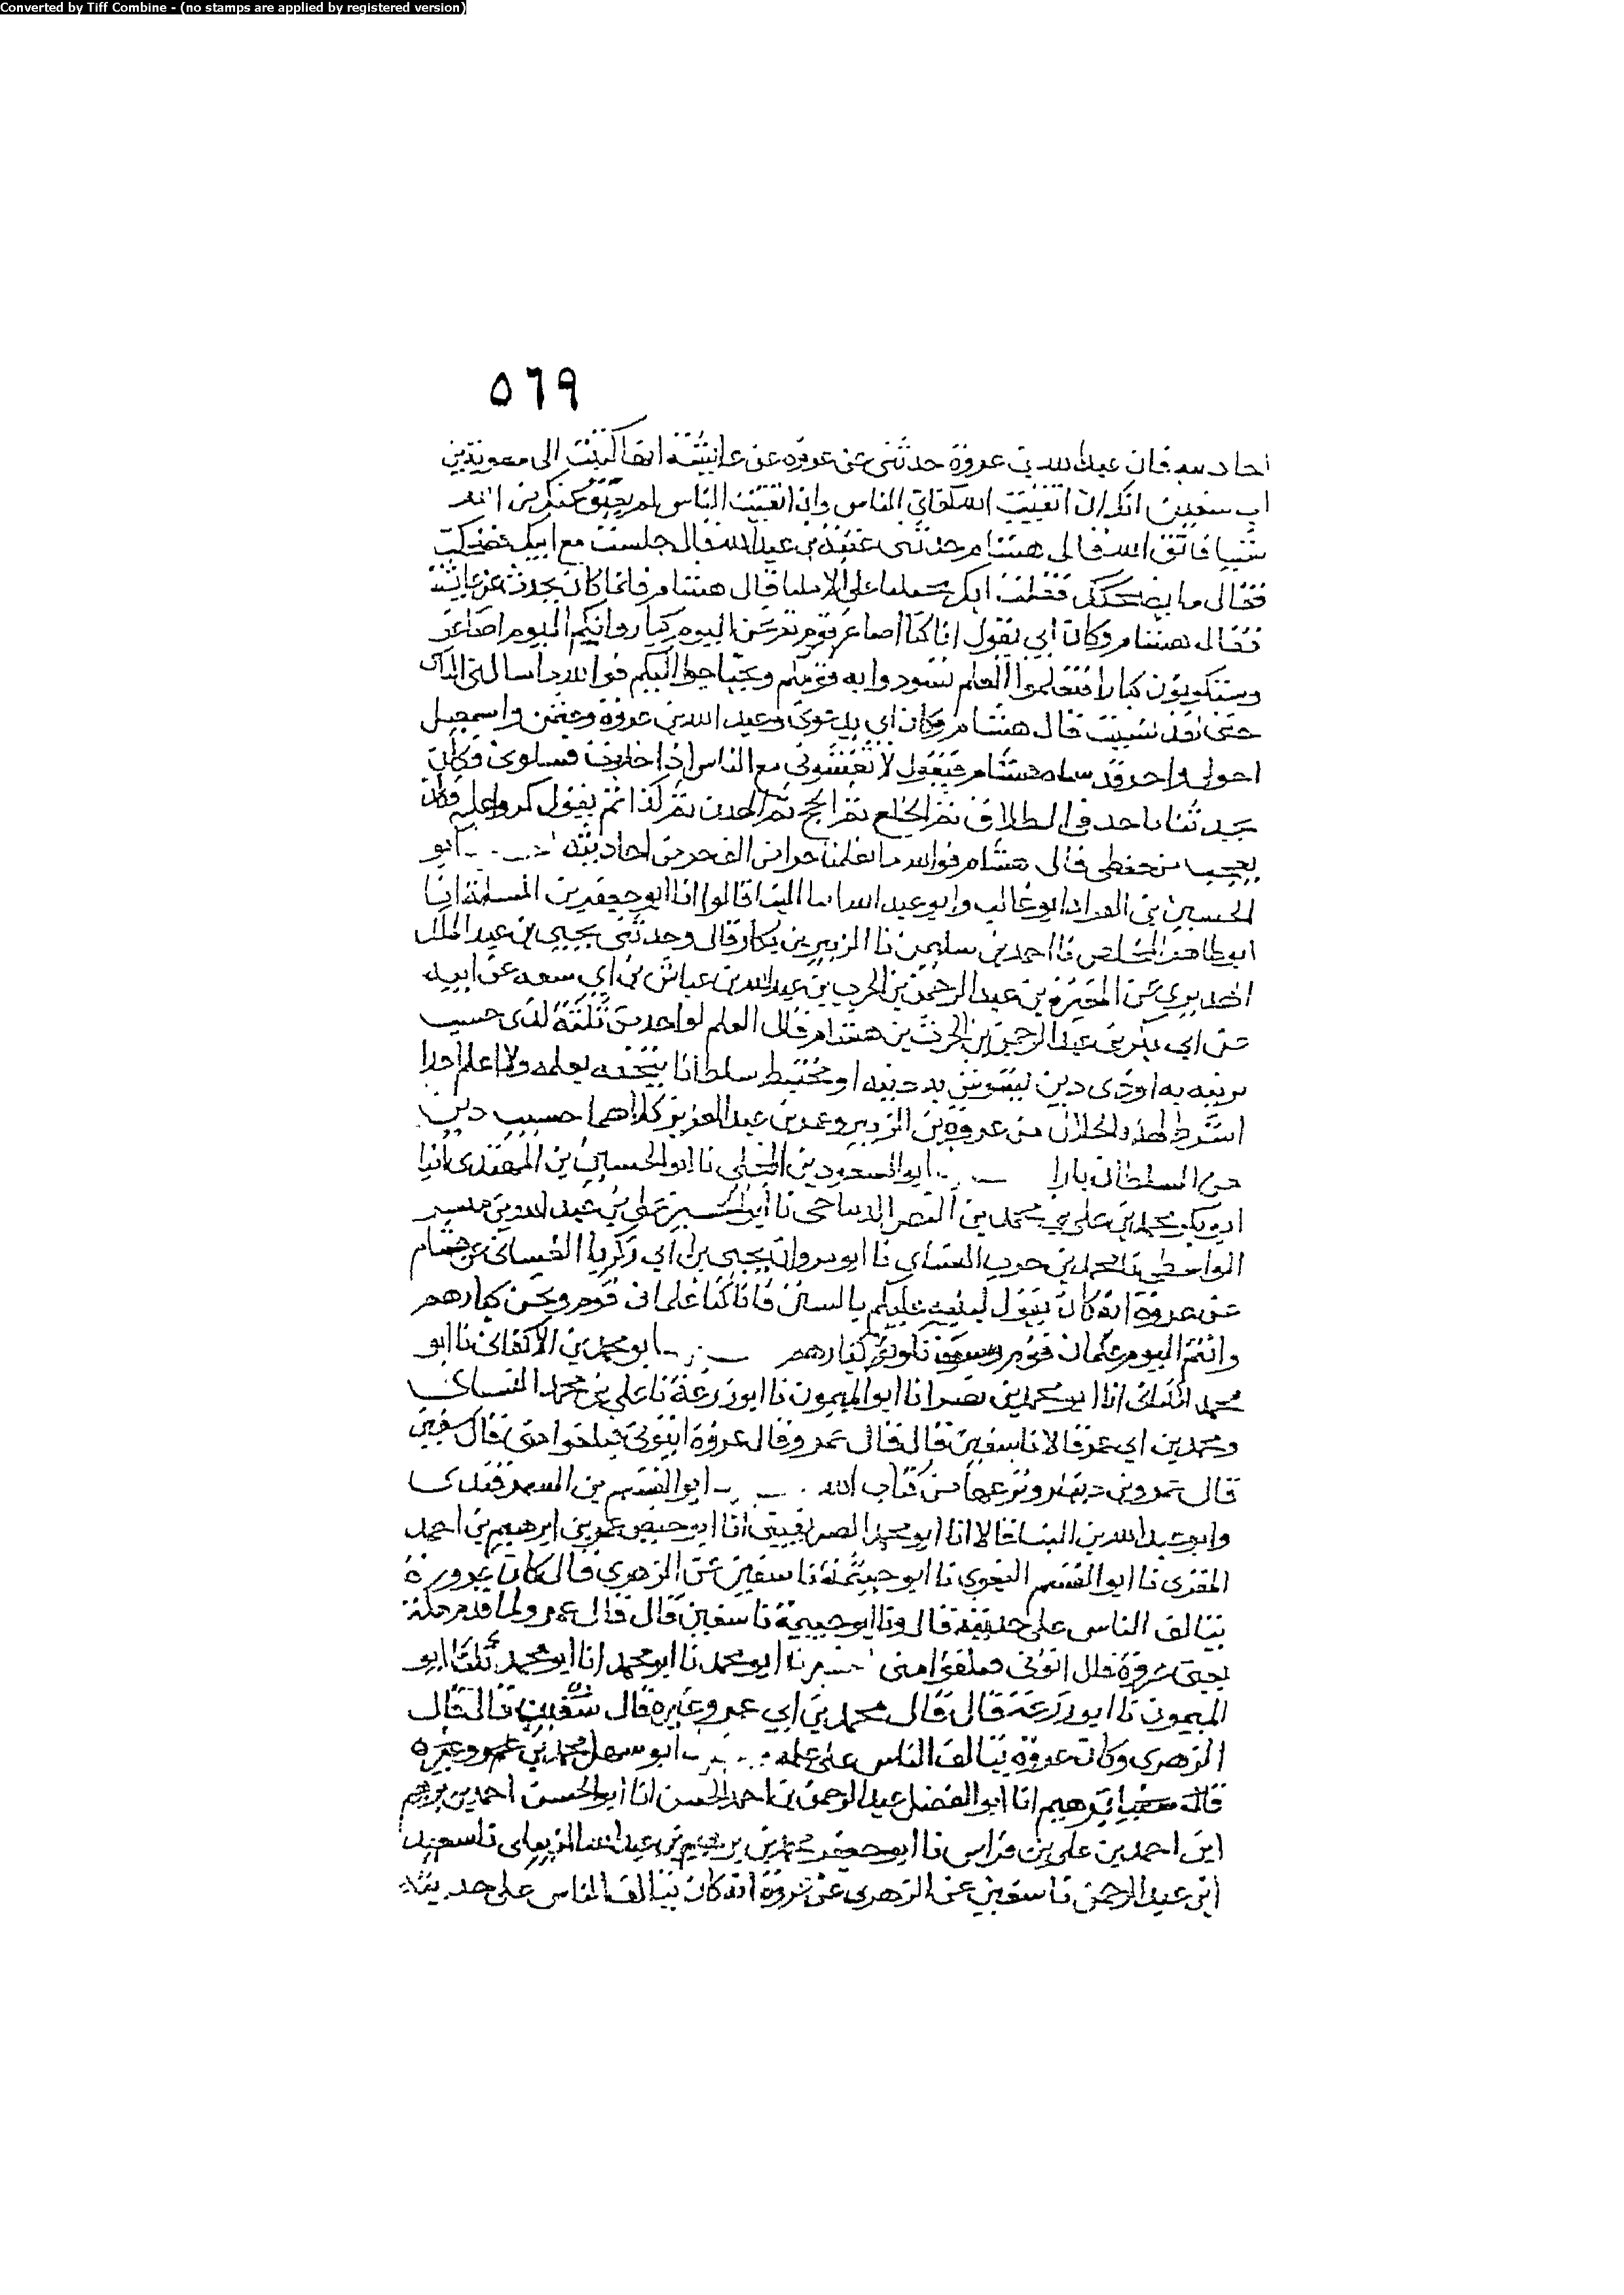 Converted by Tiff Combine - (no stamps are applied by registered version)
٥٦٩
عبد الله بن عروة حدثني عن عروة عن عايشة انها كتبت الى معوية بن
ابي سفين انك ان اتقيت الله كفاك الناس وان اتقيت الناس لم يغنوا عنك من الله
شيا فاتق الله قال هشام حدثني عبد الله قال جلست مع ابيك فضحكت
فقال ما يضحكك فقلت انك قال هشام فانما كان يحدث عن عايشة
فقال هشام وكان ابي يقول انا كنا اصاغر قوم ثم نحن اليوم كبار وانكم اليوم اصاغر
وستكونون كبارا فتعلموا العلم تسودوا به قومكم ويحتاجوا اليكم فوالله ما سالني الناس
حتى لقد نسيت قال هشام وكان ابي يدعوني وعبد الله بن عروة وعثمن واسمعيل
اخوتي واخر قد سماه هشام فيقول لا تغشوني مع الناس اذا خلوت فسلوني فكان
يحدثنا ياخذ في الطلاق ثم الخلع ثم الحج ثم الهدي ثم كذا ثم يقول كروا علي فكان
يعجب من حفظي قال هشام فوالله ما تعلمنا جزا من الف جزء من احاديثه ابو
الحسين بن الفراء وابو غالب وابو عبد الله ابنا البنا قالوا انا ابو جعفر بن المسلمة انا
ابو طاهر المخلص نا احمد بن سليمن نا الزبير بن بكار قال وحدثني يحيى بن عبد الملك
الهديري عن المغيرة بن عبد الرحمن بن الحرث بن عبد الله بن عياش بن ابي ربيعة عن ابيه
عن ابي بكر بن عبد الرحمن بن الحرث بن هشام قال العلم لواحد من ثلثة لذي حسب
يزينه به او ذي دين يسوس به دينه او مختبط سلطانا يتحفه بعلمه ولا اعلم احدا
اشرط لهذه الخلال من عروة بن الزبير وعمر بن عبد العزيز كلاهما حسيب دين
من السلطان بازا ابو السعود بن المجلي نا ابو الحسين بن المهتدي انبا
ابو بكر محمد بن علي بن محمد بن النضر الديباجي نا ابو الحسن علي بن عبد الله بن مبشر
الواسطي نا محمد بن حرب النشاي نا ابو مروان يحيى بن ابي زكريا الغساني عن هشام
عن عروة انه كان يقول لبنيه عليكم بالسنن فانا كنا غلمان قوم ونحن كبارهم
وانتم اليوم غلمان قوم وسوف تكونون كبارهم ابو محمد بن الاكفاني نا ابو
محمد الكتاني انا ابو محمد بن نصر انا ابو الميمون نا ابو زرعة نا علي بن محمد
ومحمد بن ابي عمر قالا نا سفين قال قال عمرو قال عروة ايتوني فتلقوا مني قال سفين
قال عمرو بن دينار من كتاب الله ابو القسم بن السمرقندي
وابو عبد الله بن البنا قالا انا ابو محمد الصريفيني انا ابو حفص عمر بن ابرهيم بن احمد
المقري نا ابو القسم البغوي نا ابو خيثمة نا سفين عن الزهري قال كان عروة
يتالف الناس على حديثه قال ونا ابو خيثمة نا سفين قال قال عمرو لما قدم مكة
يعني عروة قال ايتوني فتلقوا مني ابو محمد نا ابو محمد انا ابو محمد انا ابو
الميمون نا ابو زرعة قال قال محمد بن ابي عمر وغيره قال سفين قال قال
الزهري وكان عروة يتالف الناس على علمه ابو سهل محمد بن
ابرهيم انا ابو الفضل عبد الرحمن بن احمد بن الحسن انا ابو الحسن احمد بن ابرهيم
ابن احمد بن علي بن فراس نا ابو جعفر محمد بن ابرهيم بن عبد الله الديبلي نا سعيد
ابن عبد الرحمن نا سفين عن الزهري عن عروة انه كان يتالف الناس على حديثه